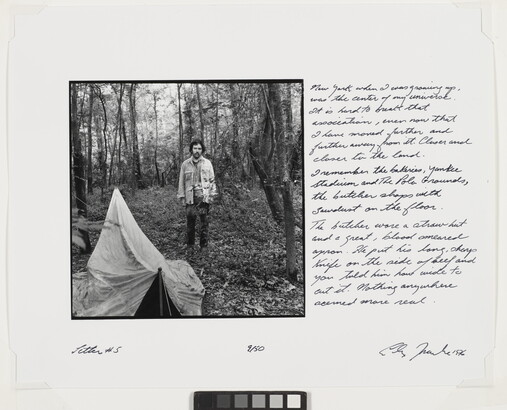 New York, when I was growing up,
was the center of my universe.
It is hard to break that
association, even now that
I have moved further and
further away from it. Closer and
closer to the land.
I remember the bakeries, Yankee
Stadium and The Polo Grounds,
the butcher shops with
sawdust on the floor.
The butcher wore a straw hat
and a great, blood smeared
apron. He put his long, sharp
knife on the side of beef and
you told him how wide to
cut it. Nothing anywhere
seemed more real.
Letter #5
9/50